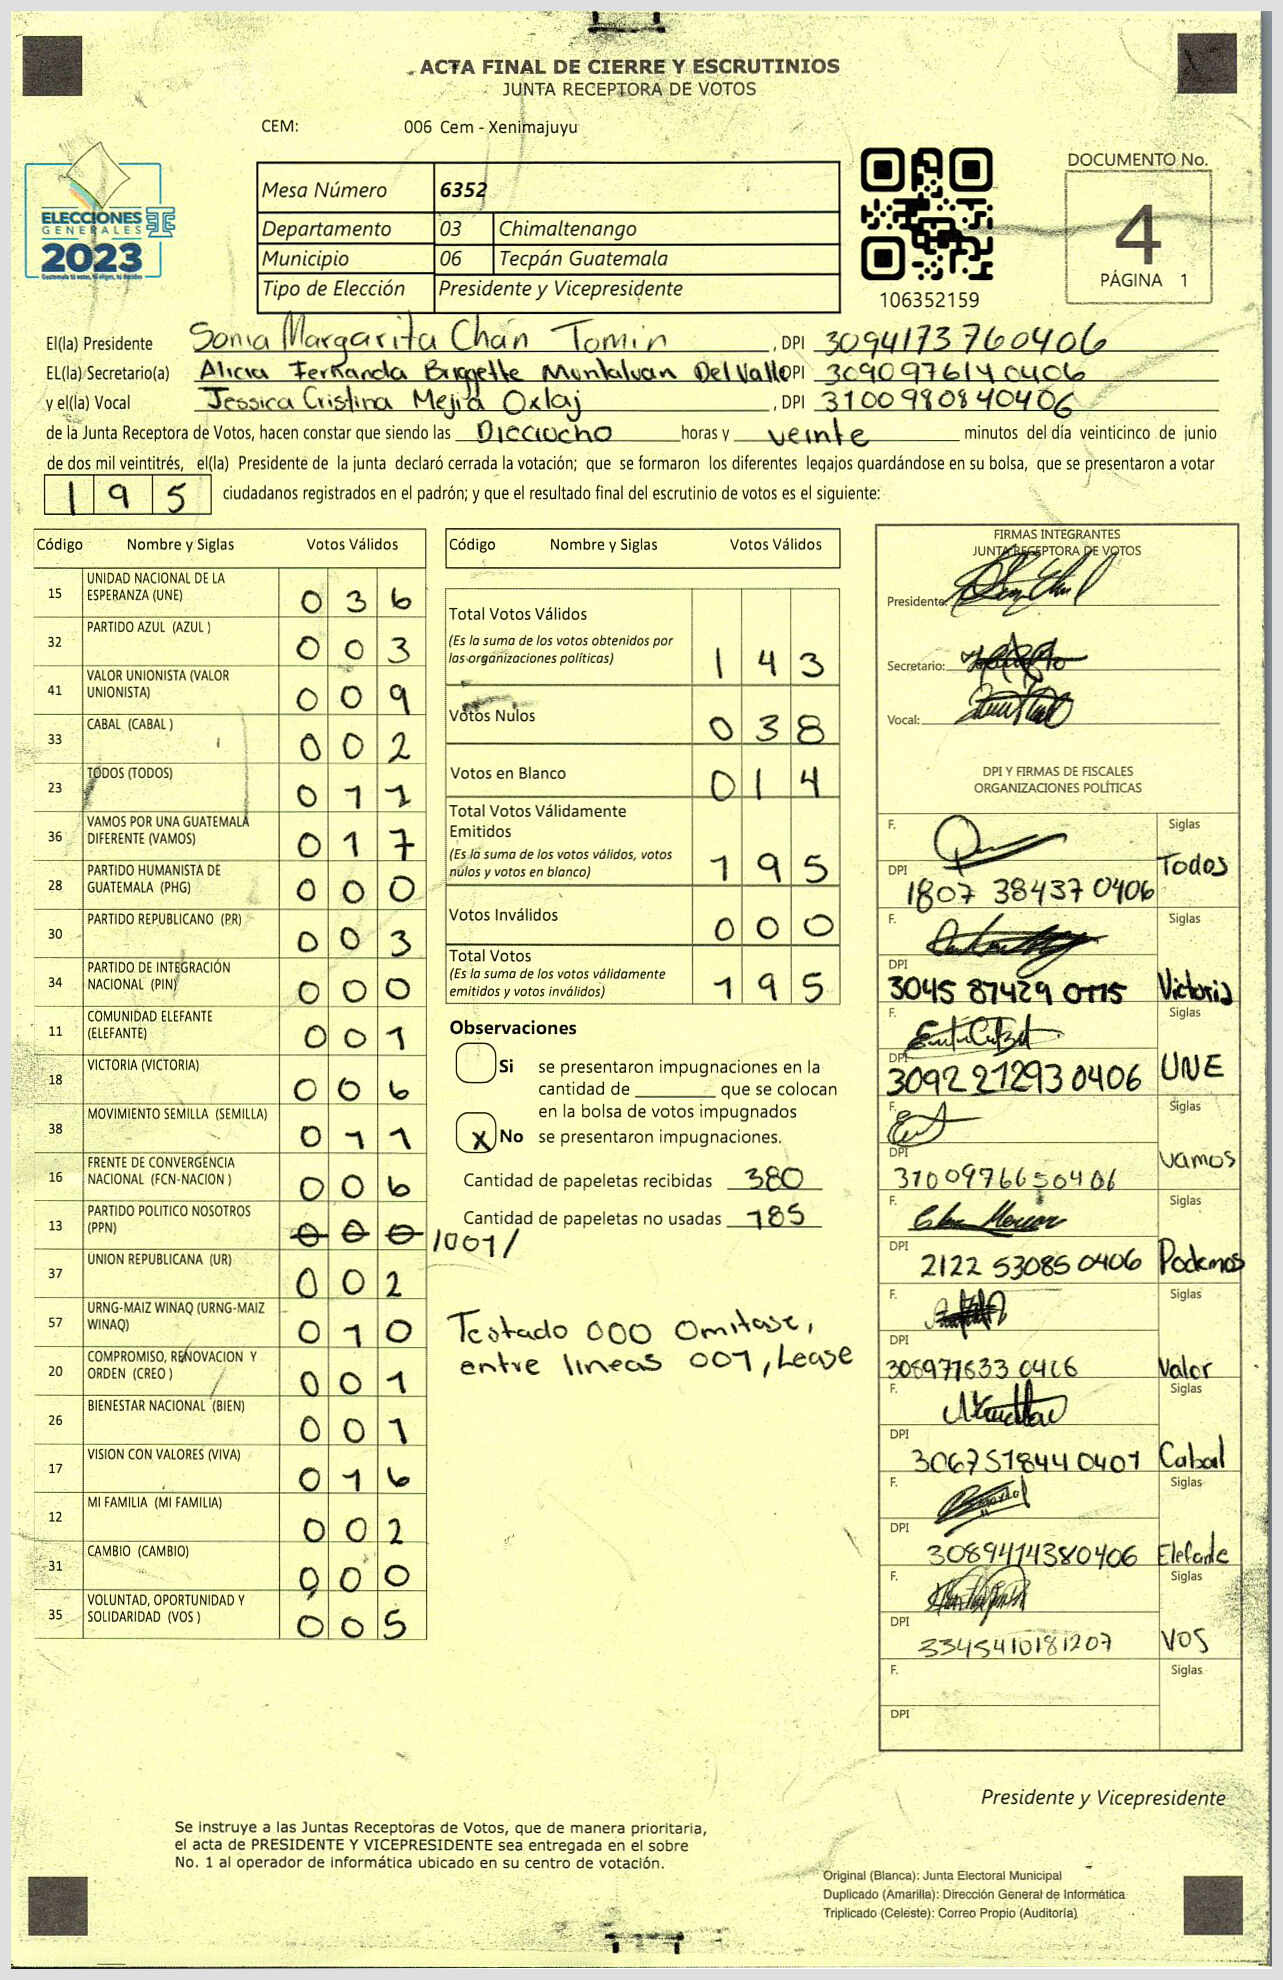 ACTA FINAL DE CIERRE Y ESCRUTINIOS
JUNTA RECEPTORA DE VOTOS
CEM: 006 Cem - Xenimajuyu
ELECCIONES
GENERALES
2023
Guatemala tú votas, tú eliges, tú decides
Mesa Número 6352
Departamento 03 Chimaltenango
Municipio 06 Tecpán Guatemala
Tipo de Elección Presidente y Vicepresidente
106352159
DOCUMENTO No.
4
PÁGINA 1
El(la) Presidente Sonia Margarita Chán Tomin , DPI 3094173760406
EL(la) Secretario(a) Alicia Fernanda Briggette Muntaluan Del Valle DPI 3090976140406
y el(la) Vocal Jessica Cristina Mejía Oxlaj , DPI 3100980840406
de la Junta Receptora de Votos, hacen constar que siendo las Dieciocho horas y veinte minutos del día veinticinco de junio
de dos mil veintitrés, el(la) Presidente de la junta declaró cerrada la votación; que se formaron los diferentes legajos guardándose en su bolsa, que se presentaron a votar
195 ciudadanos registrados en el padrón; y que el resultado final del escrutinio de votos es el siguiente:
Código Nombre y Siglas Votos Válidos
15 UNIDAD NACIONAL DE LA ESPERANZA (UNE) 036
32 PARTIDO AZUL (AZUL ) 003
41 VALOR UNIONISTA (VALOR UNIONISTA) 009
33 CABAL (CABAL ) 002
23 TODOS (TODOS) 011
36 VAMOS POR UNA GUATEMALA DIFERENTE (VAMOS) 017
28 PARTIDO HUMANISTA DE GUATEMALA (PHG) 000
30 PARTIDO REPUBLICANO (PR) 003
34 PARTIDO DE INTEGRACIÓN NACIONAL (PIN) 000
11 COMUNIDAD ELEFANTE (ELEFANTE) 001
18 VICTORIA (VICTORIA) 006
38 MOVIMIENTO SEMILLA (SEMILLA) 011
16 FRENTE DE CONVERGENCIA NACIONAL (FCN-NACION ) 006
13 PARTIDO POLITICO NOSOTROS (PPN) 000 /001/
37 UNION REPUBLICANA (UR) 002
57 URNG-MAIZ WINAQ (URNG-MAIZ WINAQ) 010
20 COMPROMISO, RENOVACION Y ORDEN (CREO ) 001
26 BIENESTAR NACIONAL (BIEN) 001
17 VISION CON VALORES (VIVA) 016
12 MI FAMILIA (MI FAMILIA) 002
31 CAMBIO (CAMBIO) 000
35 VOLUNTAD, OPORTUNIDAD Y SOLIDARIDAD (VOS ) 005
Código Nombre y Siglas Votos Válidos
Total Votos Válidos
(Es la suma de los votos obtenidos por
las organizaciones políticas) 143
Votos Nulos 038
Votos en Blanco 014
Total Votos Válidamente
Emitidos
(Es la suma de los votos válidos, votos
nulos y votos en blanco) 195
Votos Inválidos 000
Total Votos
(Es la suma de los votos válidamente
emitidos y votos inválidos) 195
Observaciones
Si se presentaron impugnaciones en la
cantidad de ________ que se colocan
en la bolsa de votos impugnados
X No se presentaron impugnaciones.
Cantidad de papeletas recibidas 380
Cantidad de papeletas no usadas 185
Testado 000 Omitase,
entre lineas 001, Lease
FIRMAS INTEGRANTES
JUNTA RECEPTORA DE VOTOS
Presidente:
Secretario:
Vocal:
DPI Y FIRMAS DE FISCALES
ORGANIZACIONES POLÍTICAS
F. Siglas
DPI 1807 38437 0406 Todos
F. Siglas
DPI 3045 87429 0115 Victoria
F. Siglas
DPI 3092 21293 0406 UNE
F. Siglas
DPI 3100976650406 vamos
F. Siglas
DPI 2122 53085 0406 Podemos
F. Siglas
DPI Valor
F. Siglas
DPI 3067518440401 Cabal
F. Siglas
DPI 3089414380406 Elefante
F. Siglas
DPI 3345410181207 VOS
F. Siglas
DPI
Presidente y Vicepresidente
Se instruye a las Juntas Receptoras de Votos, que de manera prioritaria,
el acta de PRESIDENTE Y VICEPRESIDENTE sea entregada en el sobre
No. 1 al operador de informática ubicado en su centro de votación.
Original (Blanca): Junta Electoral Municipal
Duplicado (Amarilla): Dirección General de Informática
Triplicado (Celeste): Correo Propio (Auditoría)